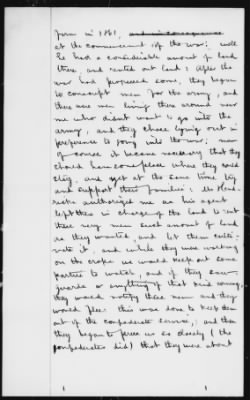 farm in 1861, and in consequence
at the commencement of the war: well
he had a considerable amount of land
there, and rented out land: After the
war had progressed some, they began
to conscript men for the army, and
there were men living there around near
me who didnt want to go into the
army, and they chose lying out in
preference to going into the war;
of course it became necessary that they
should have some place where they could
stay, and yet at the same time try
and support their families:
authorized me as his agent
left there in charge of the land to rent
these very men such amount of land
as they wanted and let them culti-
vate it, and while they were working
on the crops we would keep out some
parties to watch, and if they saw
guards or anything of that kind coming
they would notify these men and they
would flee: this was done to keep them
out of the confederate service; and then
they began to press us so closely (the
confederates did) that they were about